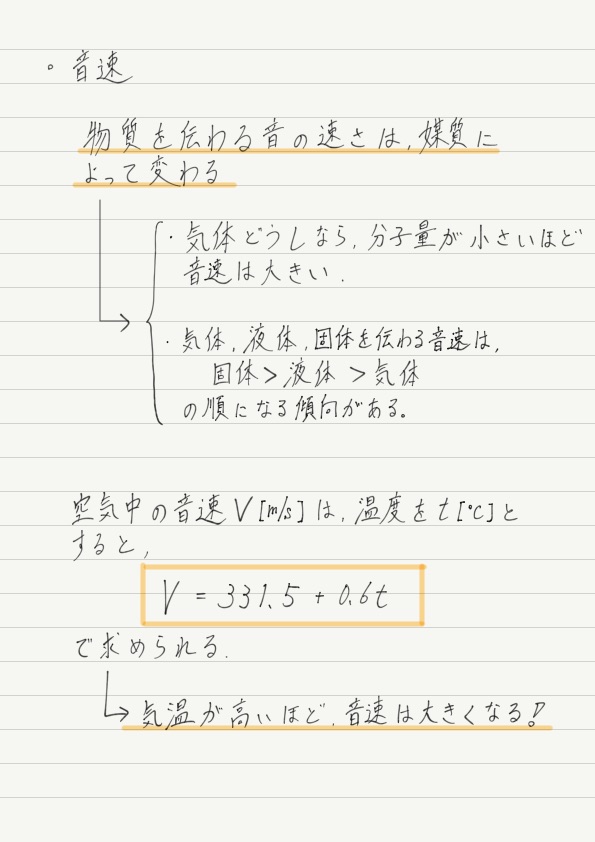 。音速
物質を伝わる音の速さは、媒質に
よって変わる
・気体どうしなら、分子量が小さいほど
音速は大きい.
・気体、液体、固体を伝わる音速は、
固体＞液体＞気体
の順になる傾向がある。
空気中の音速V[m/s]は、温度をt[℃]と
すると,
V = 331.5 + 0.6t
で求められる.
気温が高いほど、音速は大きくなる!